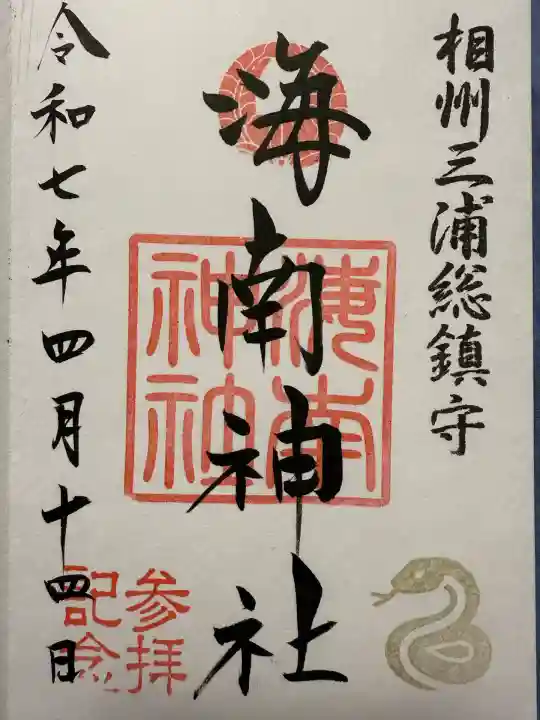 相州三浦総鎮守
海南神社
海南神社
参拝記念
令和七年四月十四日